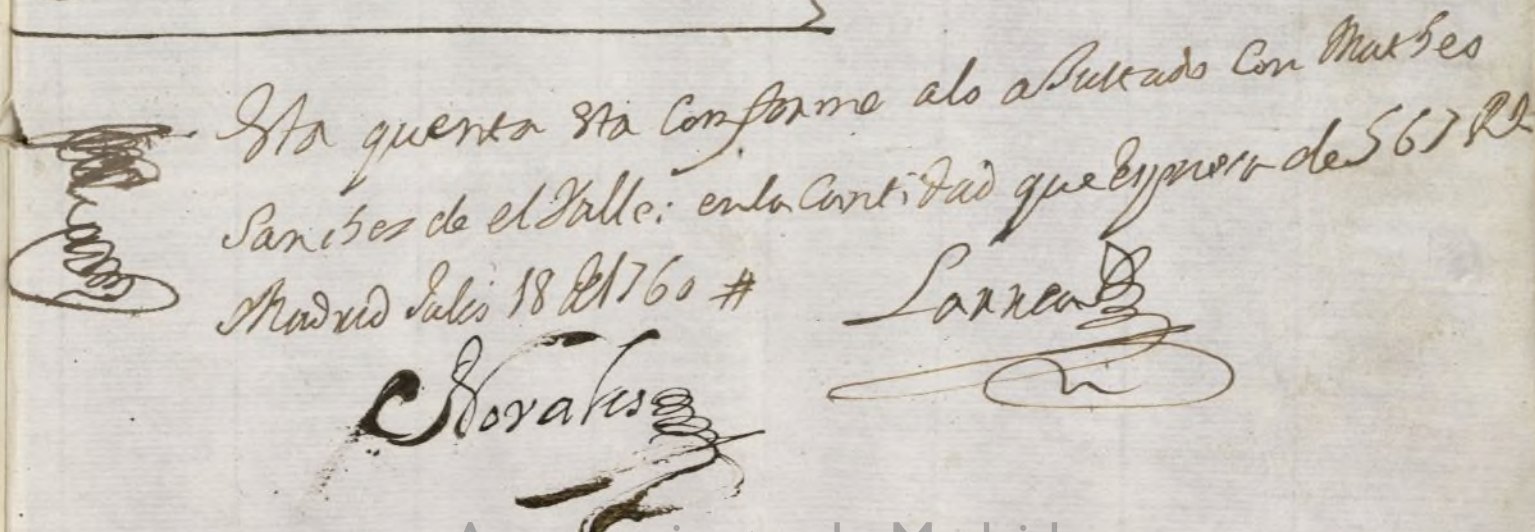 Esta quenta esta Conforme alo aJustado Con Matheo
Sanchez de el Valle: enla Cantidad que Expresa de 567 Rl
Madrid Julio 18 de 1760 #
Larrea
Morales